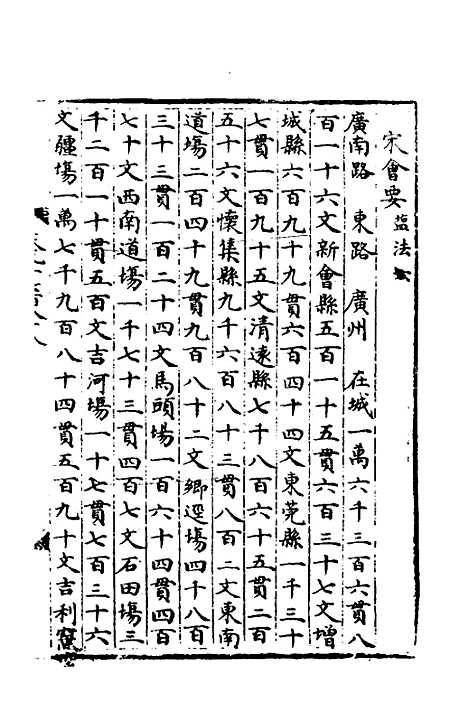 宋會要 塩法
廣南路 東路 廣州 在城一萬六千三百六貫八
百一十六文新會縣五百一十五貫六百三十七文增
城縣六百九十九貫六百四十四文東莞縣一千三十
七貫一百九十五文清遠縣七千八百六十五貫二百
五十六文懷集縣九千六百八十三貫八百二文東南
道場二百四十九貫九百八十二文鄉逕場四千八百
三十三貫一百二十四文馬頭場一百六十四貫四百
七十文西南道場一千七十三貫四百七文石田場三
千二百一十貫五百文吉河場一十七貫七百三十六
文疆場一萬七千九百八十四貫五百九十文吉利